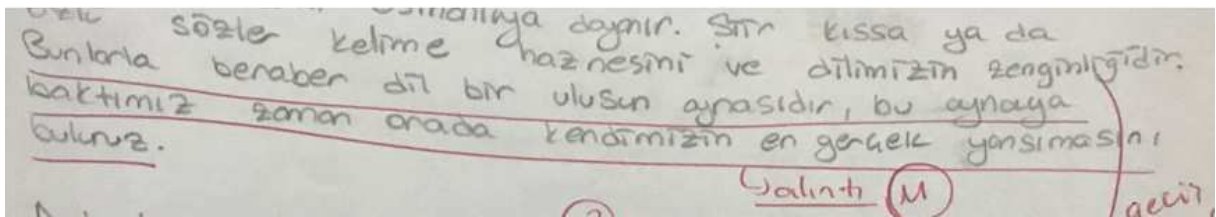 Osmanlıya dayanır. Şiir kıssa ya da
sözler kelime haznesini ve dilimizin zenginligidir.
Bunlarla beraber dil bir ulusun aynasıdır, bu aynaya
baktımız zaman orada kendimizin en gerçek yansımasını
buluruz.
alıntı M
geçiş